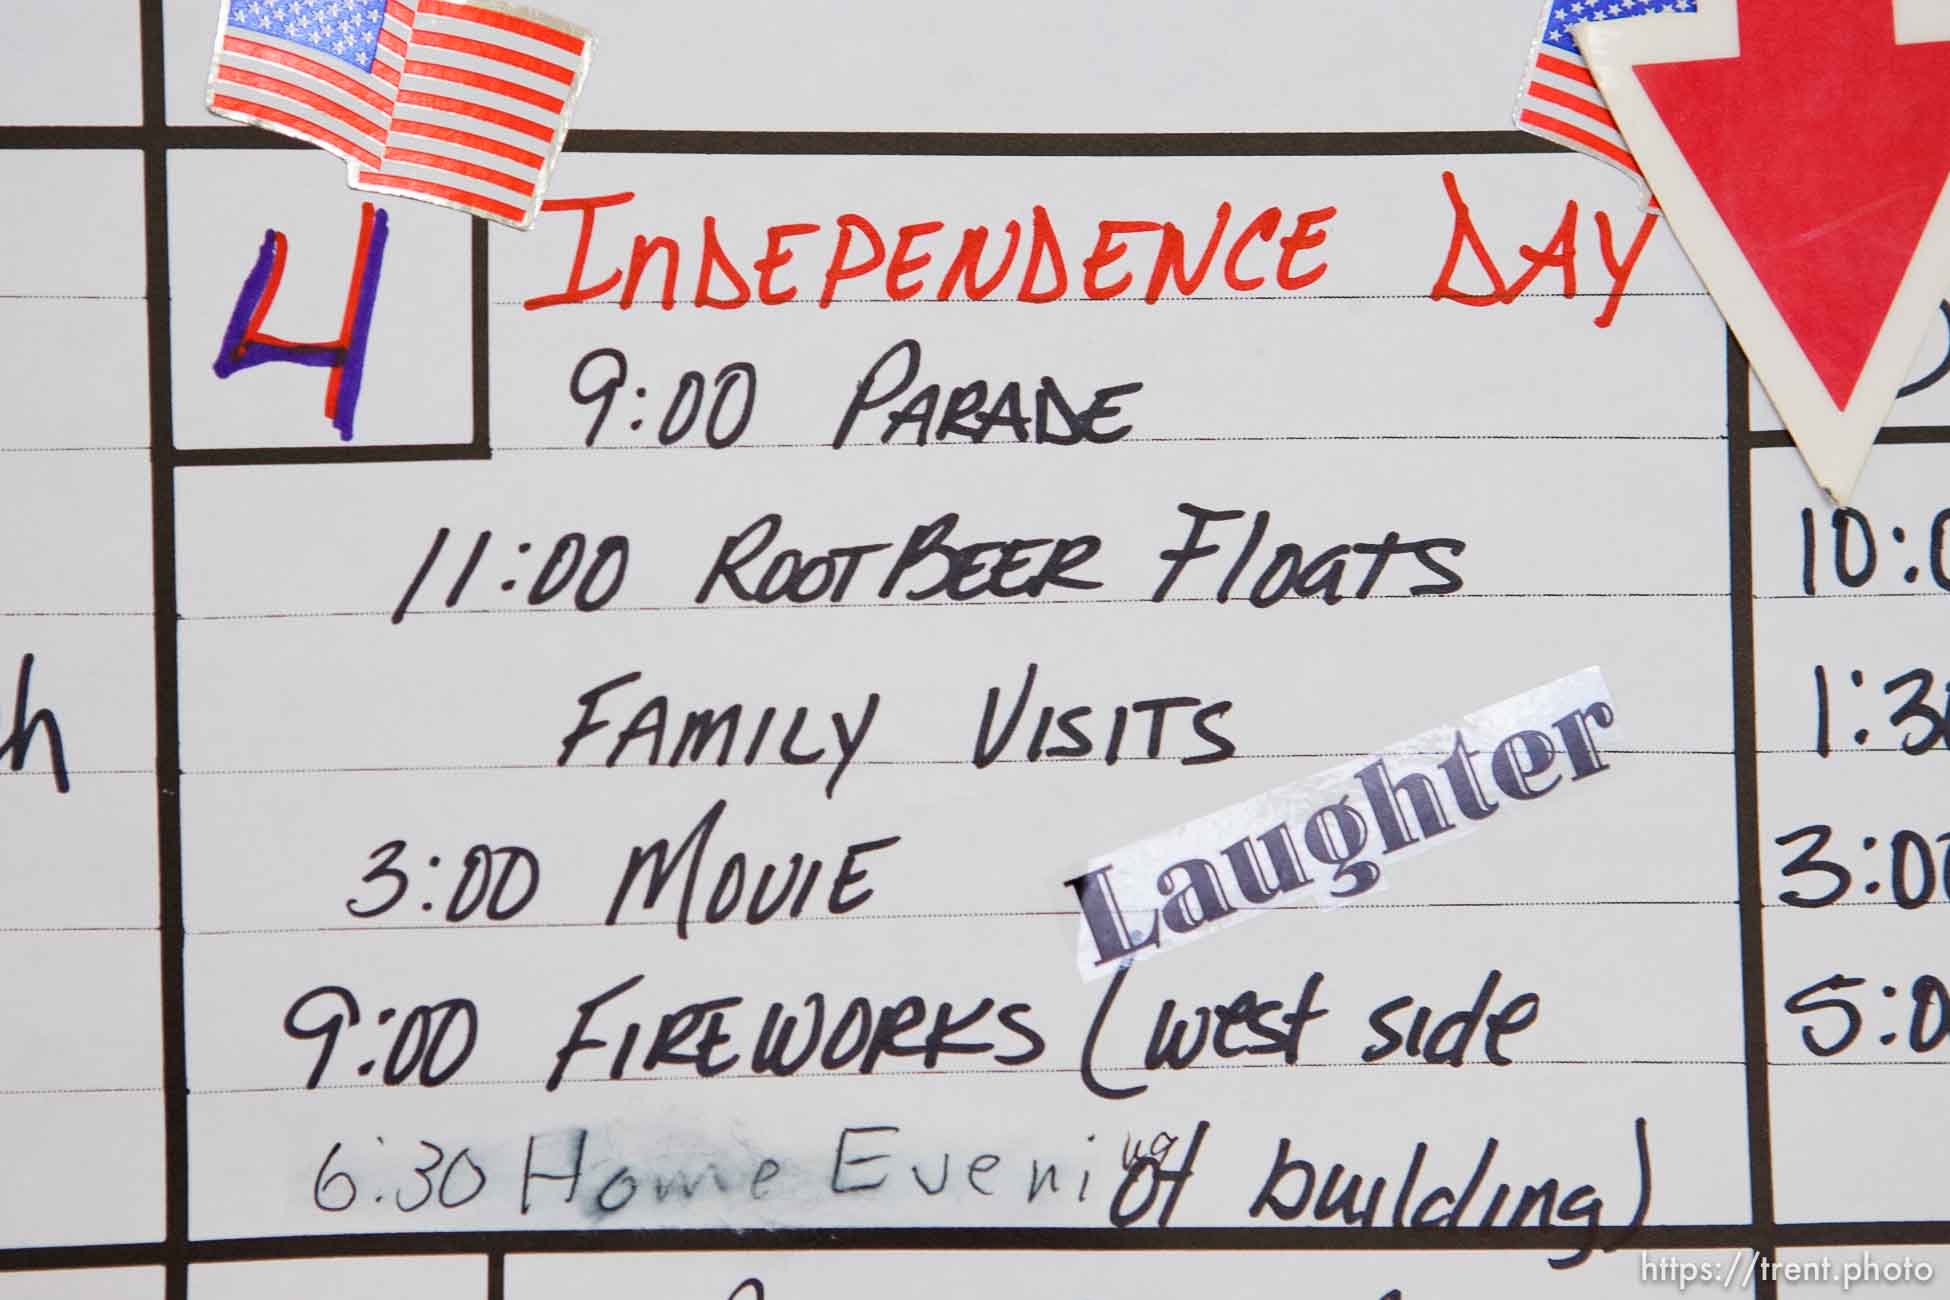 4 InDEPENDENCE DAY
9:00 PARADE
11:00 ROOTBEER Floats
10:0
FAMILY VISITS
1:3
h
3:00 MOVIE
Laughter
3:00
9:00 FIREWORKS (west side
5:0
6:30 Home Evening of building)
https://trent.photo